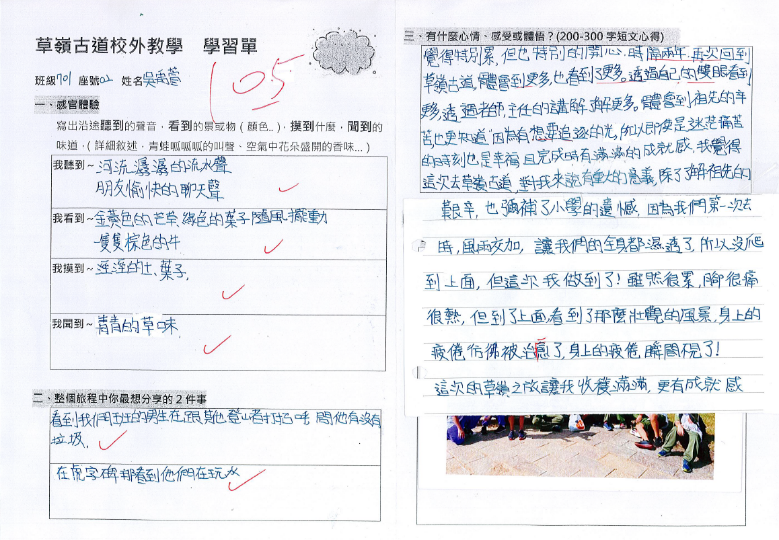 草嶺古道校外教學 學習單
105
班級701 座號02 姓名吳禹萱
一、感官體驗
寫出沿途聽到的聲音，看到的景或物（顏色…），摸到什麼，聞到的
味道，（詳細敘述，青蛙呱呱呱的叫聲、空氣中花朵盛開的香味…）
我聽到~河流潺潺的流水聲
朋友愉快的聊天聲
我看到~金黃色的芒草、綠色的葉子隨風擺動
一隻隻棕色的牛
我摸到~溼溼的土、葉子,
我聞到~青青的草味,
二、整個旅程中你最想分享的2件事
看到我們班的男生在跟其他登山者打招呼 問他有沒有
垃圾,
在虎字碑那看到他們在玩水
三、有什麼心情、感受或體悟？(200-300字短文心得)
覺得特別累,但也特別的開心,時隔兩年,再次回到
草嶺古道,體會到更多,也看到了更多。透過自己的雙眼看到
更多,透過老師,主任的講解,了解更多。體會到祖先的辛
苦也更知道"因為有想要追逐的光,所以即使是迷茫痛苦
的時刻也是幸福"且完成時有滿滿的成就感,我覺得
這次去草嶺古道,對我來說有重大的意義,除了了解祖先的
艱辛,也彌補了小學的遺憾,因為我們第一次去
時,風雨交加,讓我們的全身都濕透了,所以沒爬
到上面,但這次我做到了!雖然很累,腳很痛
很熱,但到了上面,看到了那麼壯觀的風景,身上的
疲倦彷彿被治癒了,身上的疲倦,瞬間不見了!
這次的草嶺之旅讓我收穫滿滿,更有成就感